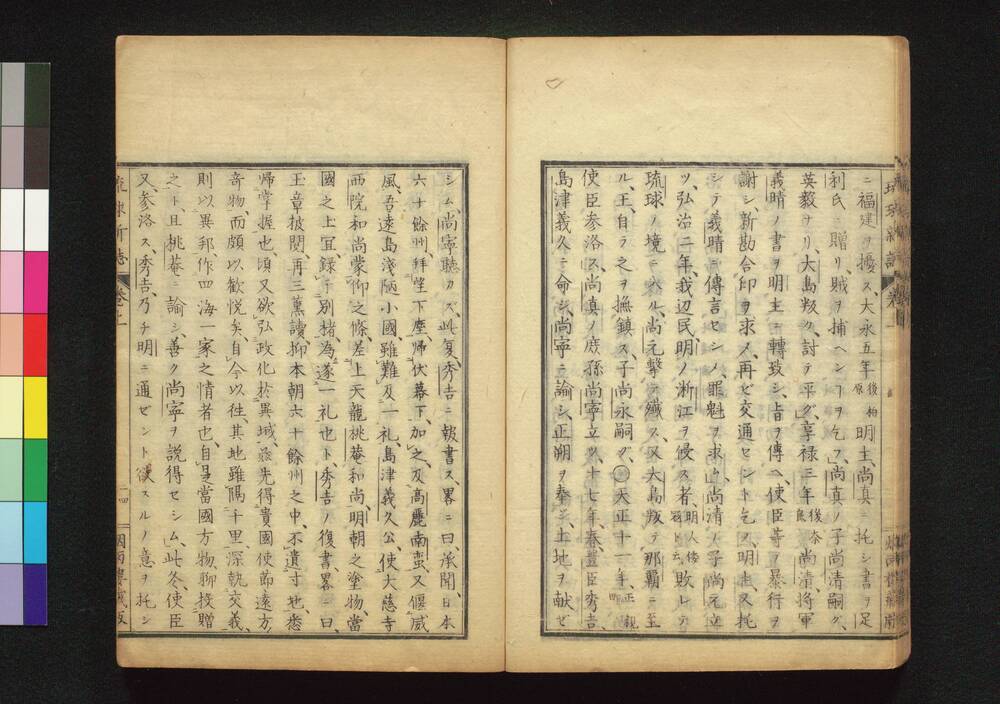 ニ福建ヲ擾ス、大永五年後柏原明主、尚真ニ托シ書ヲ足
利氏ニ贈リ、賊ヲ捕ヘンコヲ乞フ、尚真ノ子尚清嗣グ、
英毅ヲリ、大島叛ク、討テ平グ、享禄三年後奈良尚清、将軍
義晴ノ書ヲ明主ニ轉致シ、旨ヲ傳ヘ、使臣等ノ暴行ヲ
謝シ、新勘合印ヲ求メ、再ビ交通セント乞フ、明主又托
シテ義晴ニ傳言セシメ、罪魁ヲ求ム、尚清ノ子尚元立
ツ、弘治二年、我辺民、明ノ浙江ヲ侵ス者、明人倭寇ト云敗レテ
琉球ノ境ニ入ル、尚元撃テ殲ス、又大島叛テ那覇ニ至
ル、王、自ラ之ヲ撫鎮ス、子尚永嗣グ、天正十一年、正親町
使臣参洛ス、尚真ノ庶孫尚寧立ツ、十七年、秦豊臣秀吉、
島津義久ニ命シ、尚寧ニ諭シ、正朔ヲ奉シ、土地ヲ献ゼ
シム、尚寧聴カズ、此夏、秀吉ニ報書ス、畧ニ曰承聞、日本
六十餘州、拜望下塵、帰伏幕下、加之及高麗南蛮、又偃威
風、吾遠島淺陋小國、雖難及一礼、島津義久公、使大慈寺
西院和尚、蒙仰之條、差上天龍桃菴和尚、明朝之塗物、當
國之上宜、録于別楮、為遂一礼也ト、秀吉ノ復書畧ニ曰、
玉章披閲、再三薫讀、抑本朝六十餘州之中、不遺寸地、悉
帰掌握也、頃又欲弘政化於異域、茲先得貴國使節遠方
奇物、而頗以歓悦矣、自今以往、其地雖隔千里、深執交義、
則以異邦、作四海一家之情者也、自是當國方物、聊投贈
之ト、且桃菴ニ諭シ、善ク尚寧ヲ説得セシム、此冬、使臣
又参洛ス、秀吉、乃チ明ニ通ゼント欲スルノ意ヲ托シ
琉球新誌
巻上
十四
烟雨樓蔵版